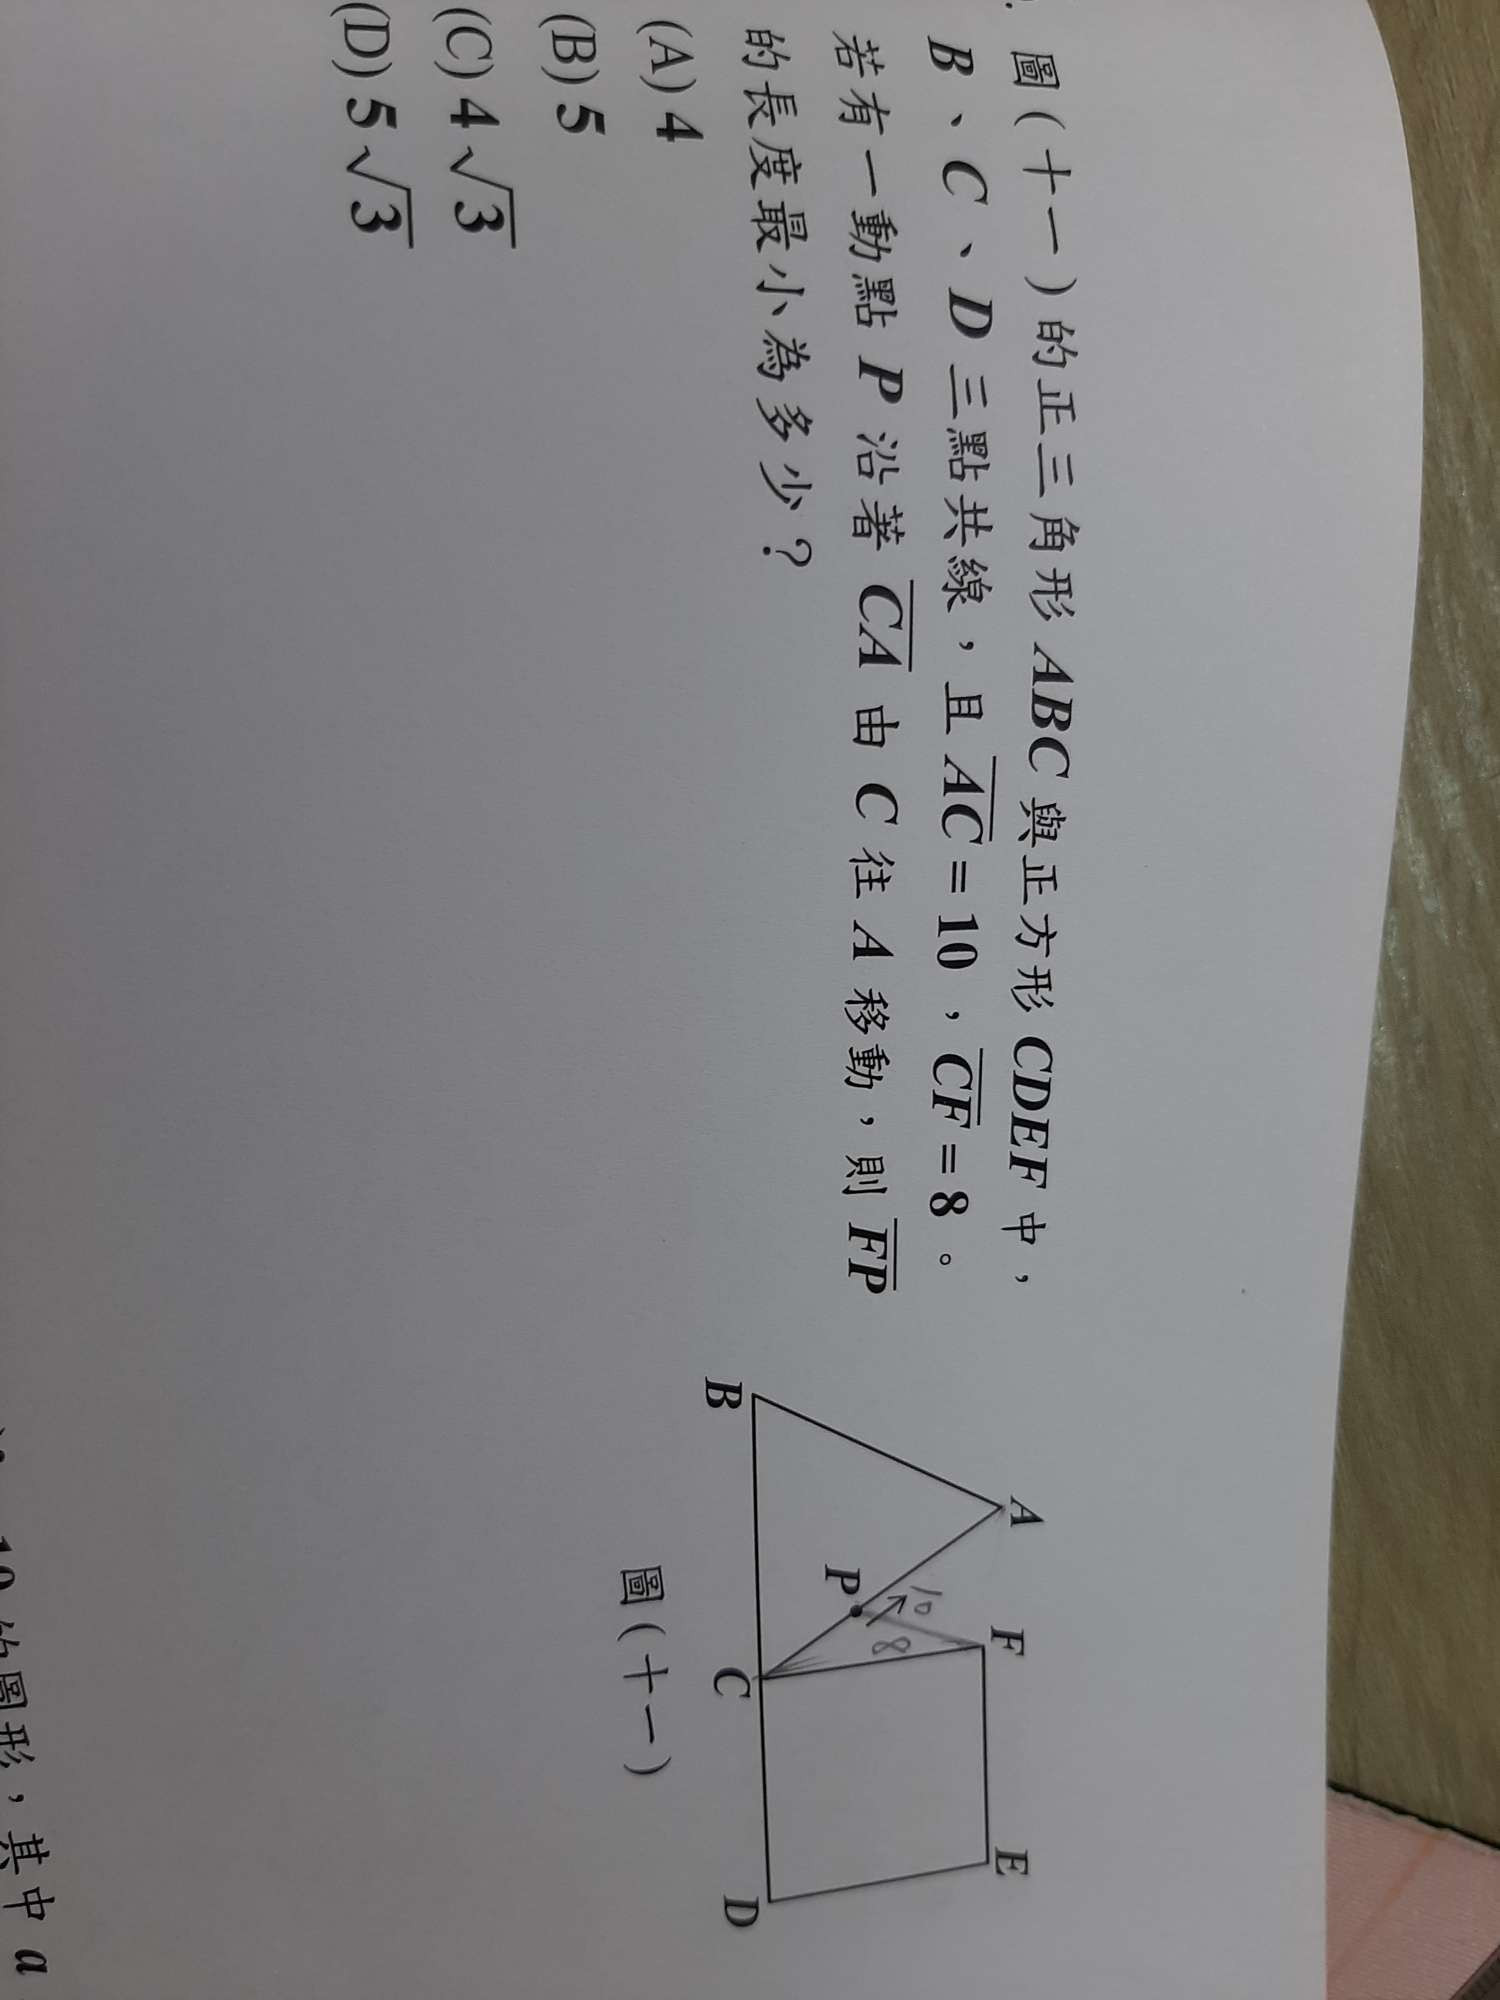 圖(十一)的正三角形 ABC 與正方形 CDEF 中，
B、C、D 三點共線，且 AC = 10，CF = 8。
若有一動點 P 沿著 CA 由 C 往 A 移動，則 FP
的長度最小為多少？
(A) 4
(B) 5
(C) 4√3
(D) 5√3
A
F
E
10
8
P
B
C
D
圖(十一)
的圖形，其中 a